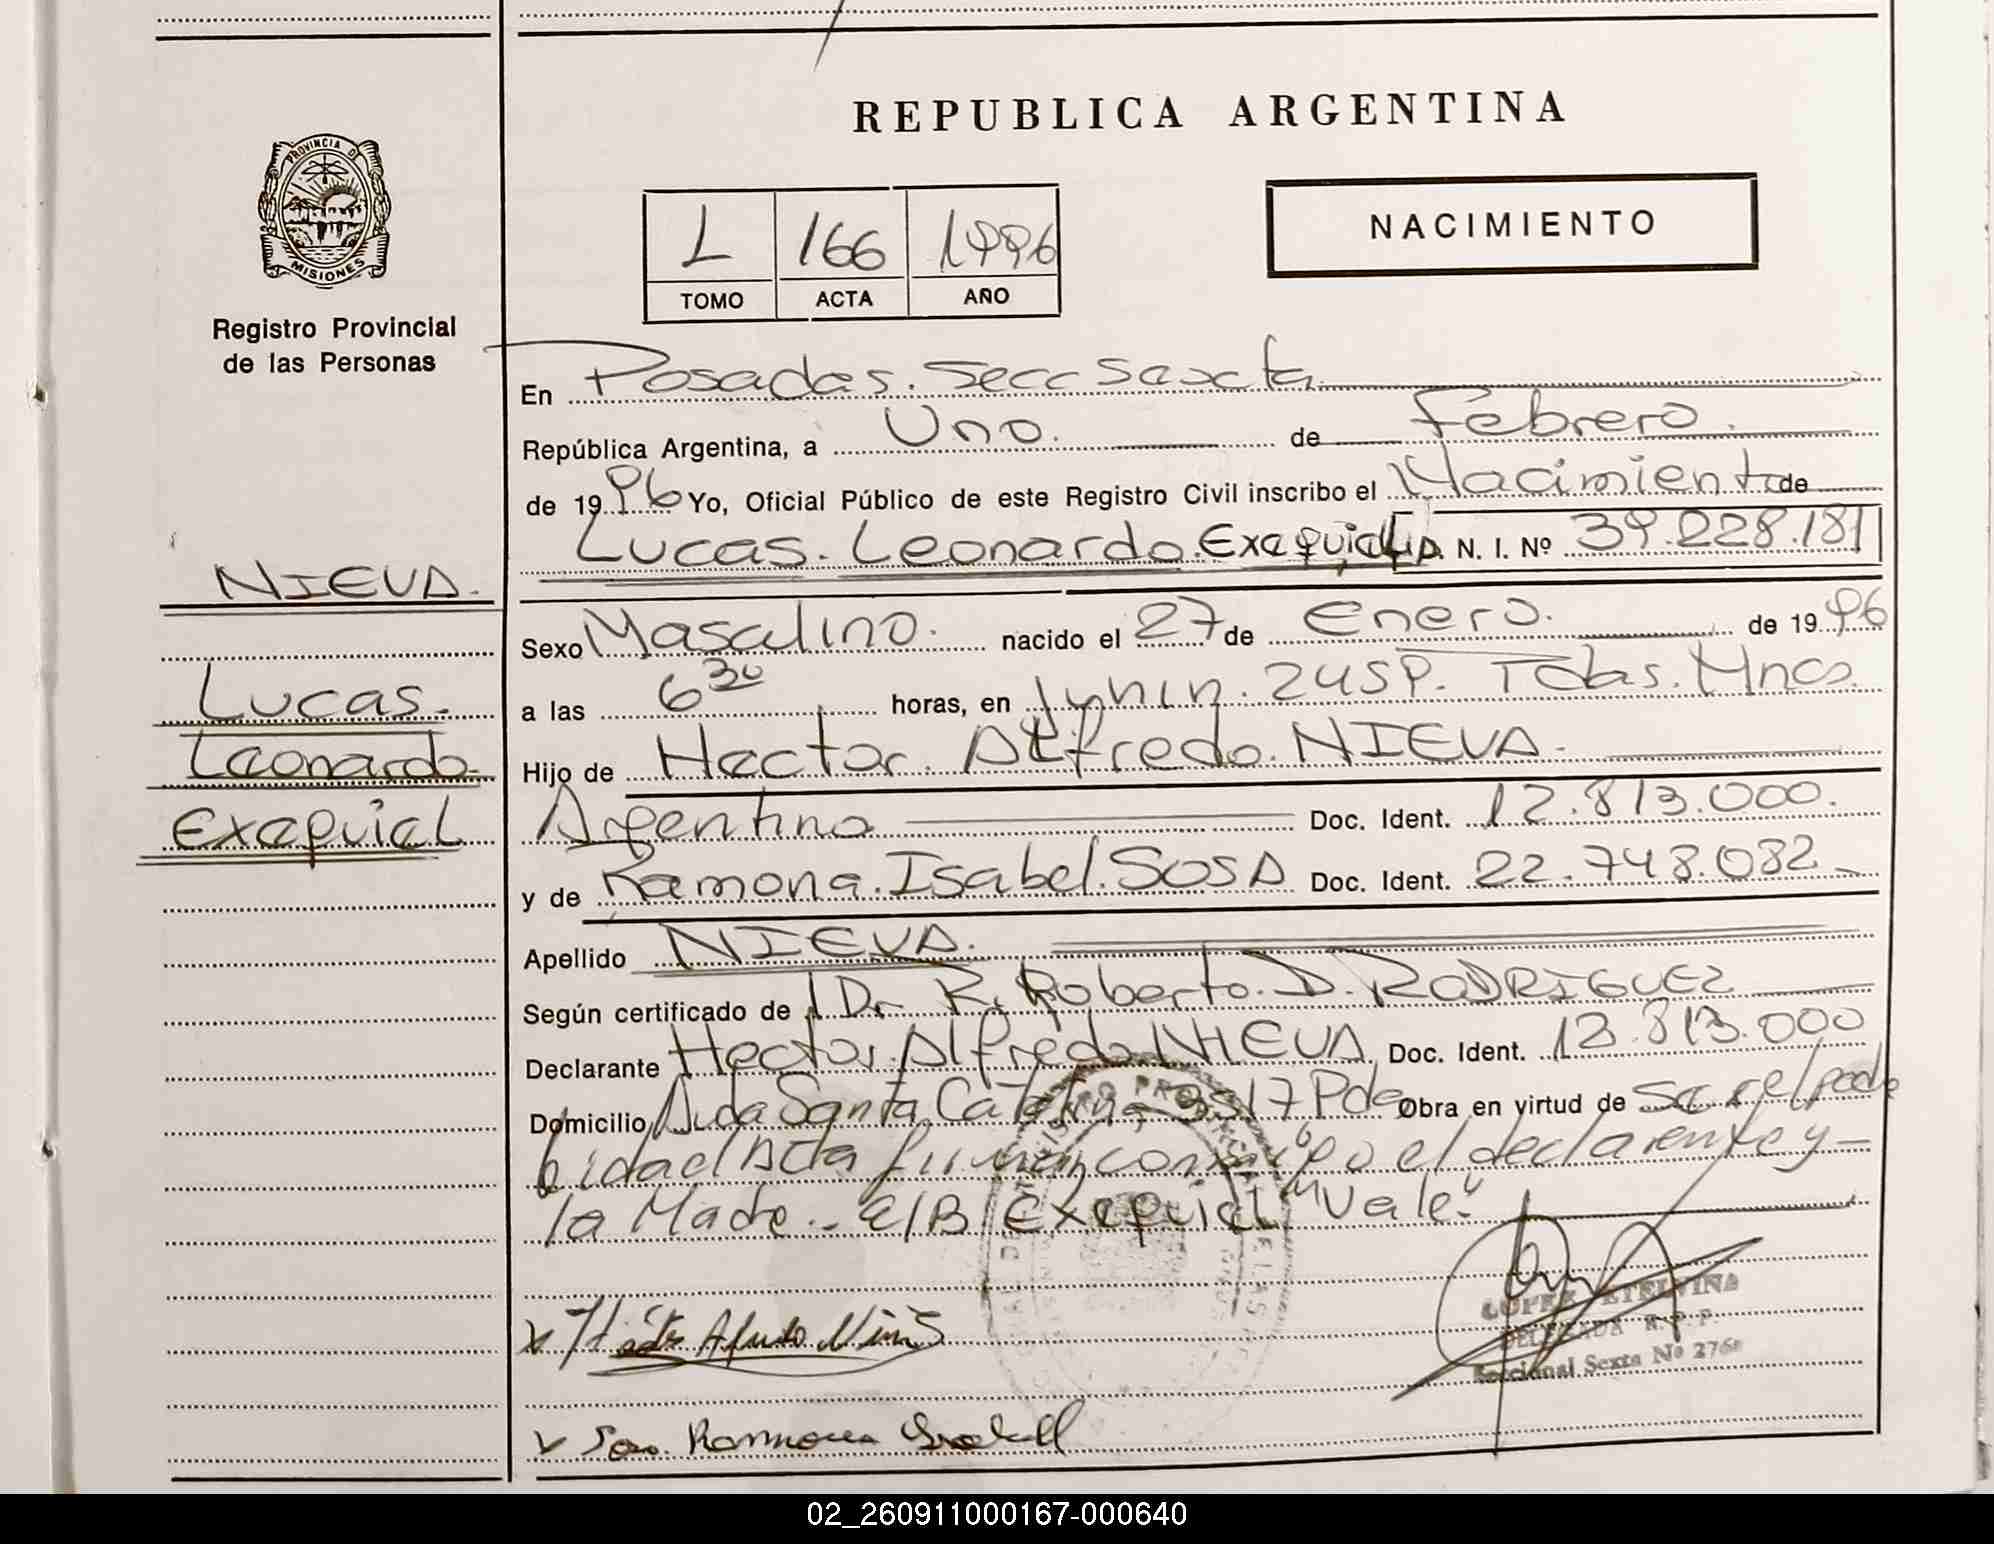 REPUBLICA ARGENTINA
PROVINCIA D
MISIONES
Registro Provincial
de las Personas
NACIMIENTO
L 166 1996
TOMO ACTA AÑO
En Posadas. Secc Sexta
República Argentina, a Uno. de Febrero.
de 1996 Yo, Oficial Público de este Registro Civil inscribo el Nacimiento de
Lucas. Leonardo. Exequiel D. N. I. Nº 39.228.181
NIEVA.
Lucas.
Leonardo.
Exequiel
Sexo Masculino. nacido el 27 de Enero. de 1996
a las 6 30 horas, en Junin. Tdas. Mnes.
Hijo de Hector. Alfredo. NIEVA.
Argentino Doc. Ident. 12.813.000.
y de Ramona. Isabel. SOSA Doc. Ident. 22.748.082
Apellido NIEVA.
Según certificado de Dr. R. Roberto. D. RODRIGUEZ
Declarante Hector. Alfredo NIEVA Doc. Ident. 12.813.000
Domicilio Avda Santa Catalina 3517 Pdas Obra en virtud de
bidad Acta firman conmigo el declarante y
la Madre.- E/B Exequiel "Vale"
LOPEZ ETELVINA
DELEGADA R. P. P.
Seccional Sexta Nº 2760
Hector Alfredo Nieva
Sosa Ramona Isabel
02_260911000167-000640